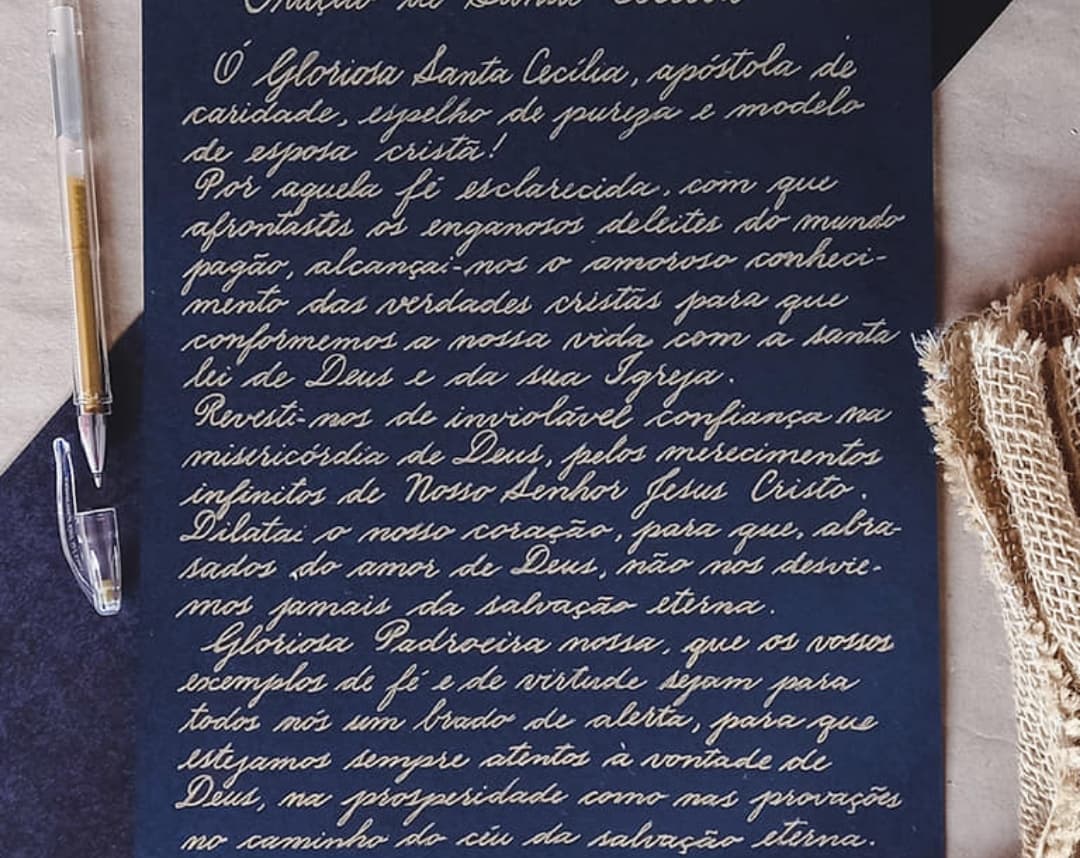 Oração de Santa Cecília
Ó Gloriosa Santa Cecília, apóstola de
caridade, espelho de pureza e modelo
de esposa cristã!
Por aquela fé esclarecida, com que
afrontastes os enganosos deleites do mundo
pagão, alcançai-nos o amoroso conheci-
mento das verdades cristãs para que
conformemos a nossa vida com a santa
lei de Deus e da sua Igreja.
Revesti-nos de inviolável confiança na
misericórdia de Deus, pelos merecimentos
infinitos de Nosso Senhor Jesus Cristo.
Dilatai o nosso coração, para que, abra-
sados do amor de Deus, não nos desvie-
mos jamais da salvação eterna.
Gloriosa Padroeira nossa, que os vossos
exemplos de fé e de virtude sejam para
todos nós um brado de alerta, para que
estejamos sempre atentos à vontade de
Deus, na prosperidade como nas provações
no caminho do céu da salvação eterna.